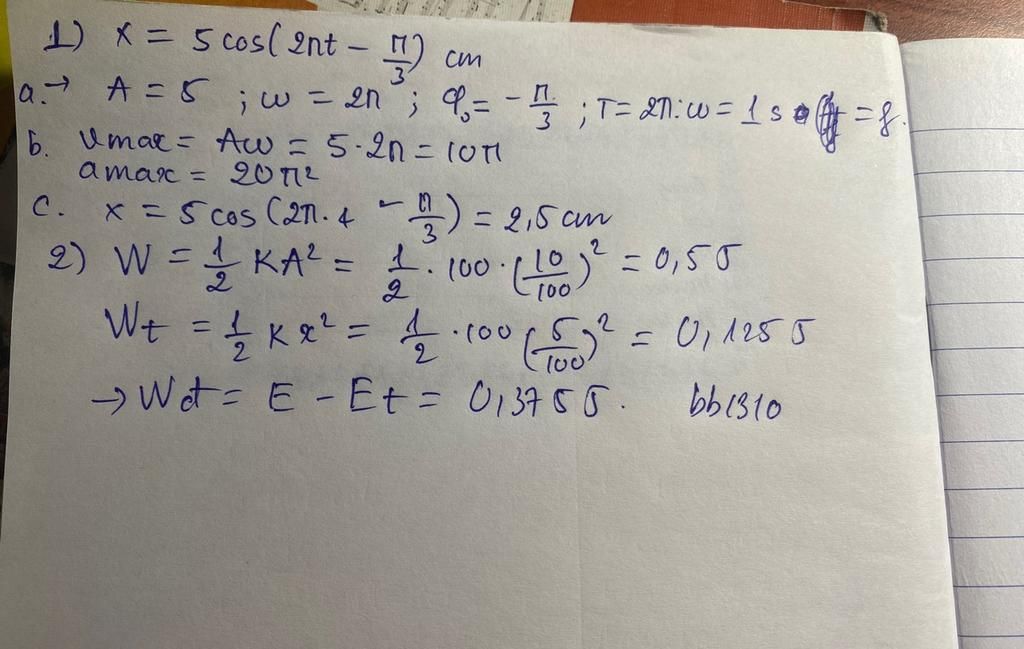 1) x = 5 cos(2πt - π/3) cm
a. → A = 5 ; ω = 2π ; φ₀ = - π/3 ; T = 2π:ω = 1 s = f.
b. vmax = Aω = 5·2π = 10π
amax = 20π²
c. x = 5 cos(2π.1 - π/3) = 2,5 cm
2) W = 1/2 KA² = 1/2 · 100 · (10/100)² = 0,5 J
Wt = 1/2 Kx² = 1/2 · 100 (5/100)² = 0,125 J
→ Wđ = E - Et = 0,375 J. bb1310